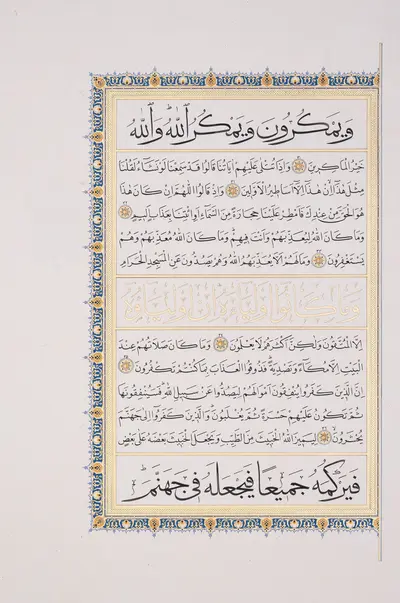 وَيَمْكُرُونَ وَيَمْكُرُ ٱللَّهُ وَٱللَّهُ
خَيْرُ الْمَاكِرِينَ ۝ وَإِذَا تُتْلَى عَلَيْهِمْ آيَاتُنَا قَالُوا قَدْ سَمِعْنَا لَوْ نَشَاءُ لَقُلْنَا
مِثْلَ هَذَا إِنْ هَذَا إِلَّا أَسَاطِيرُ الْأَوَّلِينَ ۝ وَإِذْ قَالُوا اللَّهُمَّ إِنْ كَانَ هَذَا
هُوَ الْحَقَّ مِنْ عِنْدِكَ فَأَمْطِرْ عَلَيْنَا حِجَارَةً مِنَ السَّمَاءِ أَوِ ائْتِنَا بِعَذَابٍ أَلِيمٍ ۝
وَمَا كَانَ اللَّهُ لِيُعَذِّبَهُمْ وَأَنْتَ فِيهِمْ وَمَا كَانَ اللَّهُ مُعَذِّبَهُمْ وَهُمْ
يَسْتَغْفِرُونَ ۝ وَمَا لَهُمْ أَلَّا يُعَذِّبَهُمُ اللَّهُ وَهُمْ يَصُدُّونَ عَنِ الْمَسْجِدِ الْحَرَامِ
وَمَا كَانُوا أَوْلِيَاءَهُ إِنْ أَوْلِيَاؤُهُ
إِلَّا الْمُتَّقُونَ وَلَكِنَّ أَكْثَرَهُمْ لَا يَعْلَمُونَ ۝ وَمَا كَانَ صَلَاتُهُمْ عِنْدَ
الْبَيْتِ إِلَّا مُكَاءً وَتَصْدِيَةً فَذُوقُوا الْعَذَابَ بِمَا كُنْتُمْ تَكْفُرُونَ ۝
إِنَّ الَّذِينَ كَفَرُوا يُنْفِقُونَ أَمْوَالَهُمْ لِيَصُدُّوا عَنْ سَبِيلِ اللَّهِ فَسَيُنْفِقُونَهَا
ثُمَّ تَكُونُ عَلَيْهِمْ حَسْرَةً ثُمَّ يُغْلَبُونَ وَالَّذِينَ كَفَرُوا إِلَى جَهَنَّمَ
يُحْشَرُونَ ۝ لِيَمِيزَ اللَّهُ الْخَبِيثَ مِنَ الطَّيِّبِ وَيَجْعَلَ الْخَبِيثَ بَعْضَهُ عَلَى بَعْضٍ
فَيَرْكُمَهُ جَمِيعًا فَيَجْعَلَهُ فِي جَهَنَّمَ